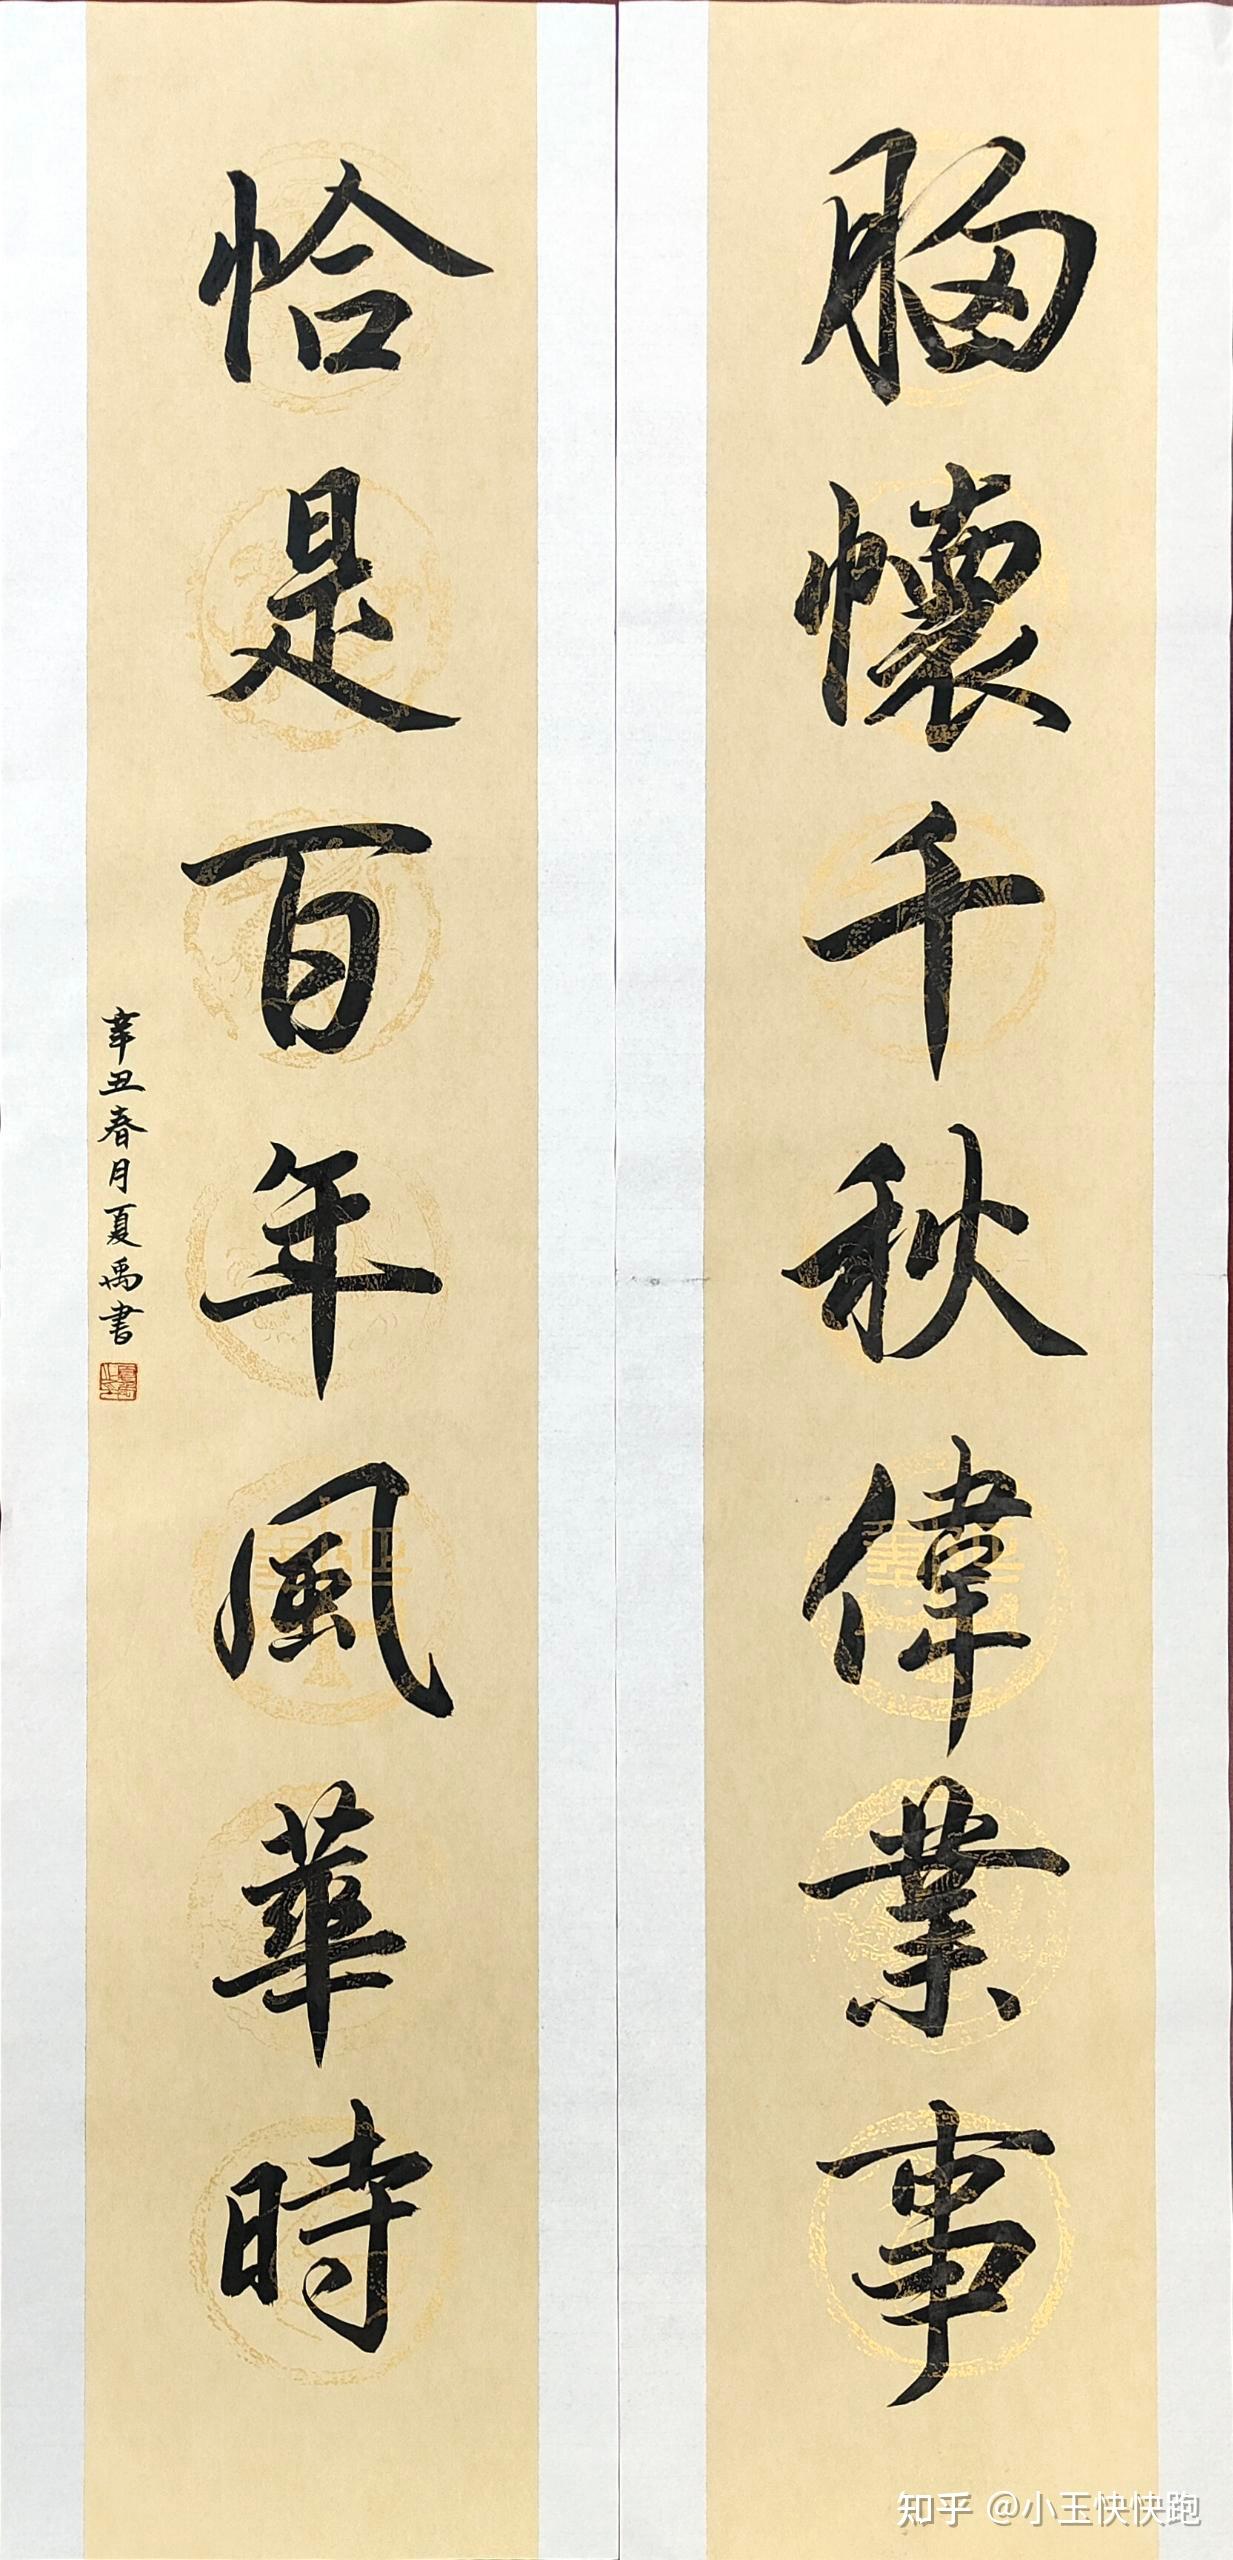 胸懷千秋偉業事
恰是百年風華時
辛丑春月夏禹書
知乎 @小玉快快跑